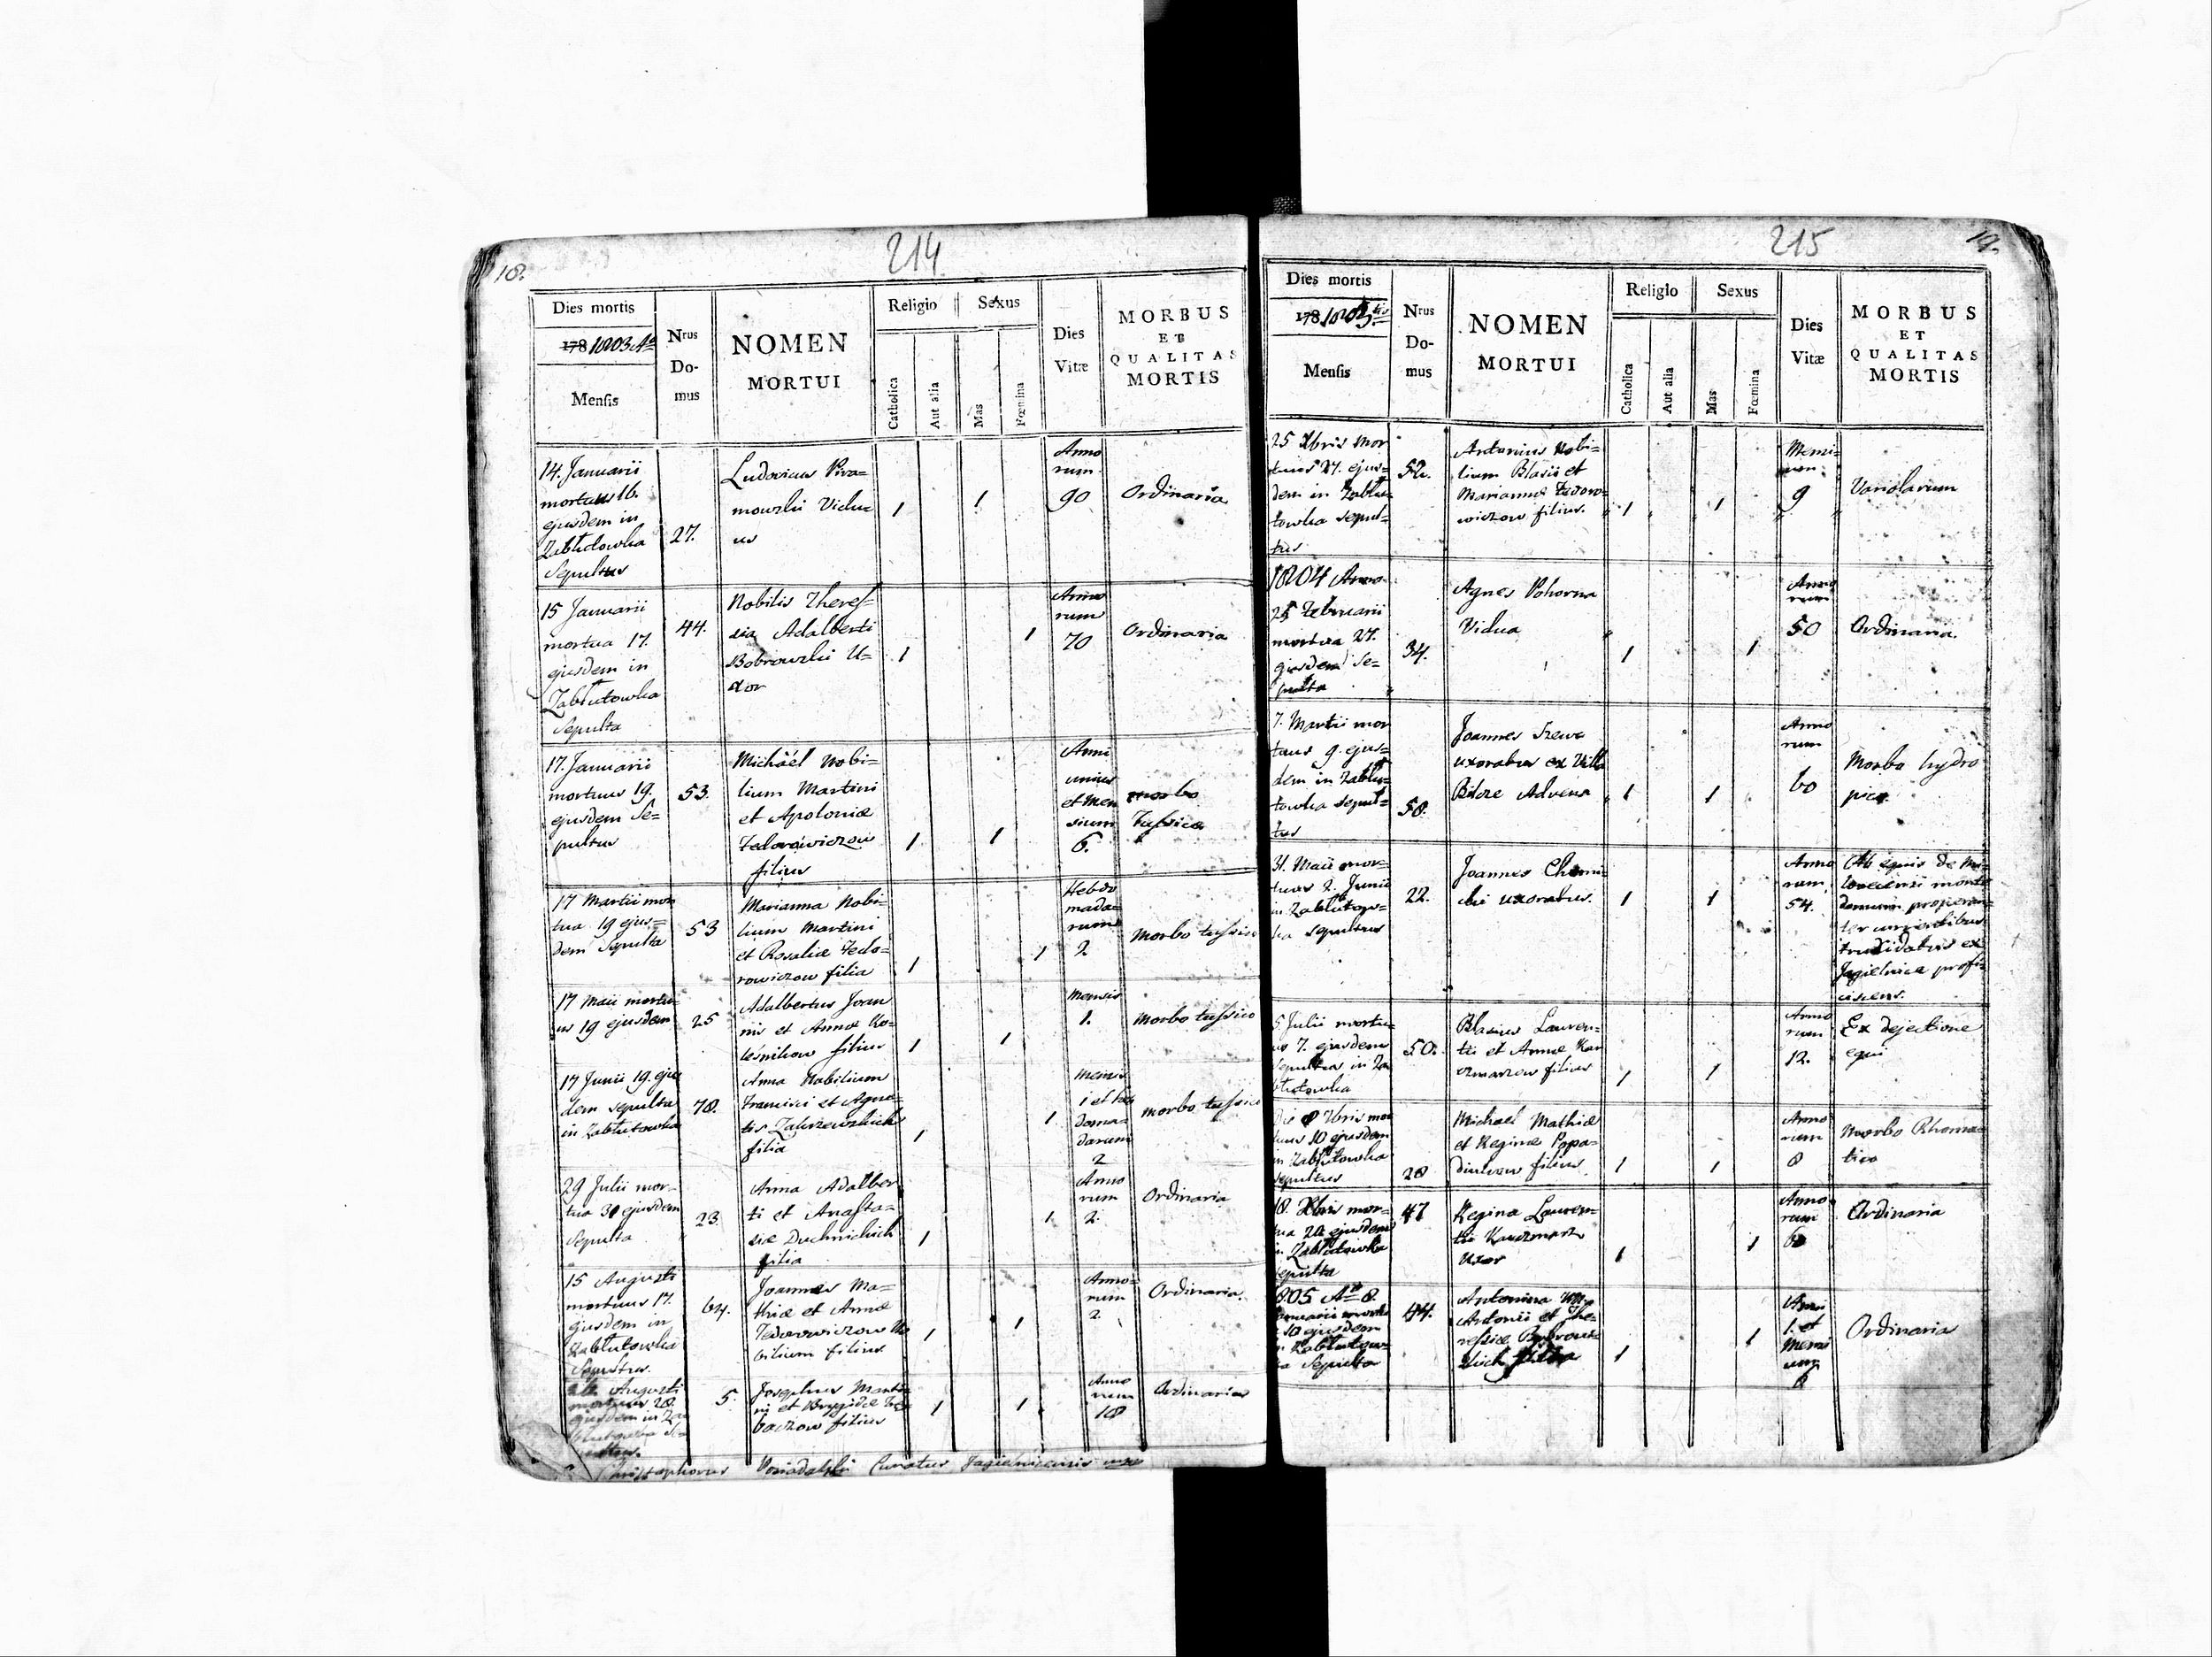 18.
214
Dies mortis
178 1803 Ao
Mensis
Nrus
Do-
mus
NOMEN
MORTUI
Religio
Catholica
Aut alia
Sexus
Mas
Fœmina
Dies
Vitæ
MORBUS
ET
QUALITAS
MORTIS
14. Januarii
mortuus 16.
ejusdem in
Zabłutowka
Sepultus
27.
Ludovicus Pira=
mowski Vidu=
us
1
1
Anno
rum
90
Ordinaria
15 Januarii
mortua 17.
ejusdem in
Zabłutowka
Sepulta
44.
Nobilis Theres=
sia Adalberti
Bobrowski U=
xor
1
1
Anno
rum
70
Ordinaria
17. Januarii
mortuus 19.
ejusdem Se=
pultus
53.
Michaël Nobi=
lium Martini
et Apoloniæ
Fedorowiczow
filius
1
1
Anni
unius
et Men
sium
6.
morbo
Tussica
17 Martii mor
tua 19 ejus=
dem Sepulta
53
Marianna Nobi=
lium Martini
et Rosaliæ Fedo=
rowiczow filia
1
1
Hebdo
mada=
rum
2
Morbo tussico
17 Maii mortu
us 19 ejusdem
25
Adalbertus Joan
nis et Annæ Ko=
leśnikow filius
1
1
Mensis
1.
Morbo tussico
17 Junii 19. ejus
dem sepulta
in Zabłutowka
78.
Anna Nobilium
Francisci et Agne=
tis Zakrzewskich
filia
1
1
Mensis
1 et heb
doma=
darum
2
Morbo tussico
29 Julii mor=
tua 30 ejusdem
Sepulta
23.
Anna Adalber
ti et Anasta=
siæ Duchnickich
filia
1
1
Anno
rum
2.
Ordinaria
15 Augusti
mortuus 17.
ejusdem in
Zabłutowka
Sepultus.
64.
Joannes Ma=
thiæ et Annæ
Fedorowiczow No
bilium filius
1
1
Anno=
rum
2.
Ordinaria.
Augusti
mortuus 28.
ejusdem in Za
5.
Josephus Marti
ni et Brygidæ
filius
1
1
Anno
rum
18
Ordinaria
Christophorus Curatus Jagielnicensis mp
19.
215
Dies mortis
178 1803tis
Mensis
Nrus
Do-
mus
NOMEN
MORTUI
Religio
Catholica
Aut alia
Sexus
Mas
Fœmina
Dies
Vitæ
MORBUS
ET
QUALITAS
MORTIS
25 Xbris mor
tuus 27. ejus=
dem in Zabłu=
towka sepul=
tus
52.
Antonius Nobi=
lium Blasii et
Mariannæ Fedoro=
wiczow filius.
1
1
Mensi=
um
9
Variolarum
1804 Anno
25 Februarii
mortua 27.
ejusdem Se=
pulta
34.
Agnes Pohorna
Vidua
1
1
Anno
rum
50
Ordinaria.
7. Martii mor
tuus 9. ejus=
dem in Zabłu=
towka sepul=
tus
58.
Joannes
uxoratus ex Villa
Bilcze Advena
1
1
Anno
rum
60
Morbo hydro
pico
31. Maii mor=
tuus 2. Junii
in Zabłutow=
ka sepultus
22.
Joannes
uxoratus.
1
1
Anno
rum
54.
Ab equis de
monte
domum properan=
ter
trucidatus ex
Jagielnica profi=
ciscens.
5 Julii mortu=
us 7. ejusdem
Sepultus in Za
błutowka
50.
Blasius Lauren=
tii et Annæ Kar
czmarzow filius
1
1
Anno
rum
12.
Ex dejectione
equi
Die 8 7bris mor
tuus 10 ejusdem
in Zabłutowka
sepultus
28
Michael Mathiæ
et Reginæ Popa=
diukow filius
1
1
Anno
rum
8
Morbo Rhoma=
tico
18. Xbris mor=
tua 20 ejusdem
in Zabłutowka
sepulta
47
Regina Lauren=
tii Karczmarz
Uxor
1
1
Anno
rum
60
Ordinaria
1805 Ao 8.
10 ejusdem
Zabłutow=
ka Sepulta
44.
Antonina
Antonii et The=
ressiæ Bobrows=
kich filia
1
1
Anni
1. et
Mensi
um
6
Ordinaria